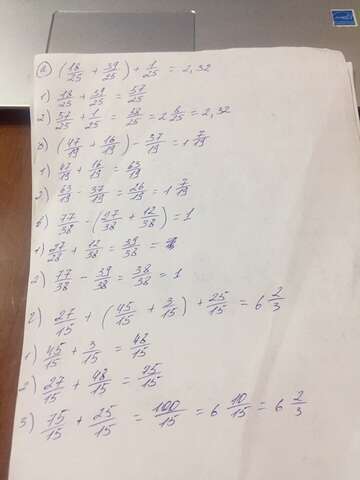 а) (18/25 + 39/25) + 1/25 = 2,32
1) 18/25 + 39/25 = 57/25
2) 57/25 + 1/25 = 58/25 = 2 8/25 = 2,32
б) (47/19 + 16/19) - 37/19 = 1 7/19
1) 47/19 + 16/19 = 63/19
2) 63/19 - 37/19 = 26/19 = 1 7/19
в) 77/38 - (27/38 + 12/38) = 1
1) 27/28 + 12/38 = 39/38 =
2) 77/38 - 39/38 = 38/38 = 1
г) 27/15 + (45/15 + 3/15) + 25/15 = 6 2/3
1) 45/15 + 3/15 = 48/15
2) 27/15 + 48/15 = 75/15
3) 75/15 + 25/15 = 100/15 = 6 10/15 = 6 2/3